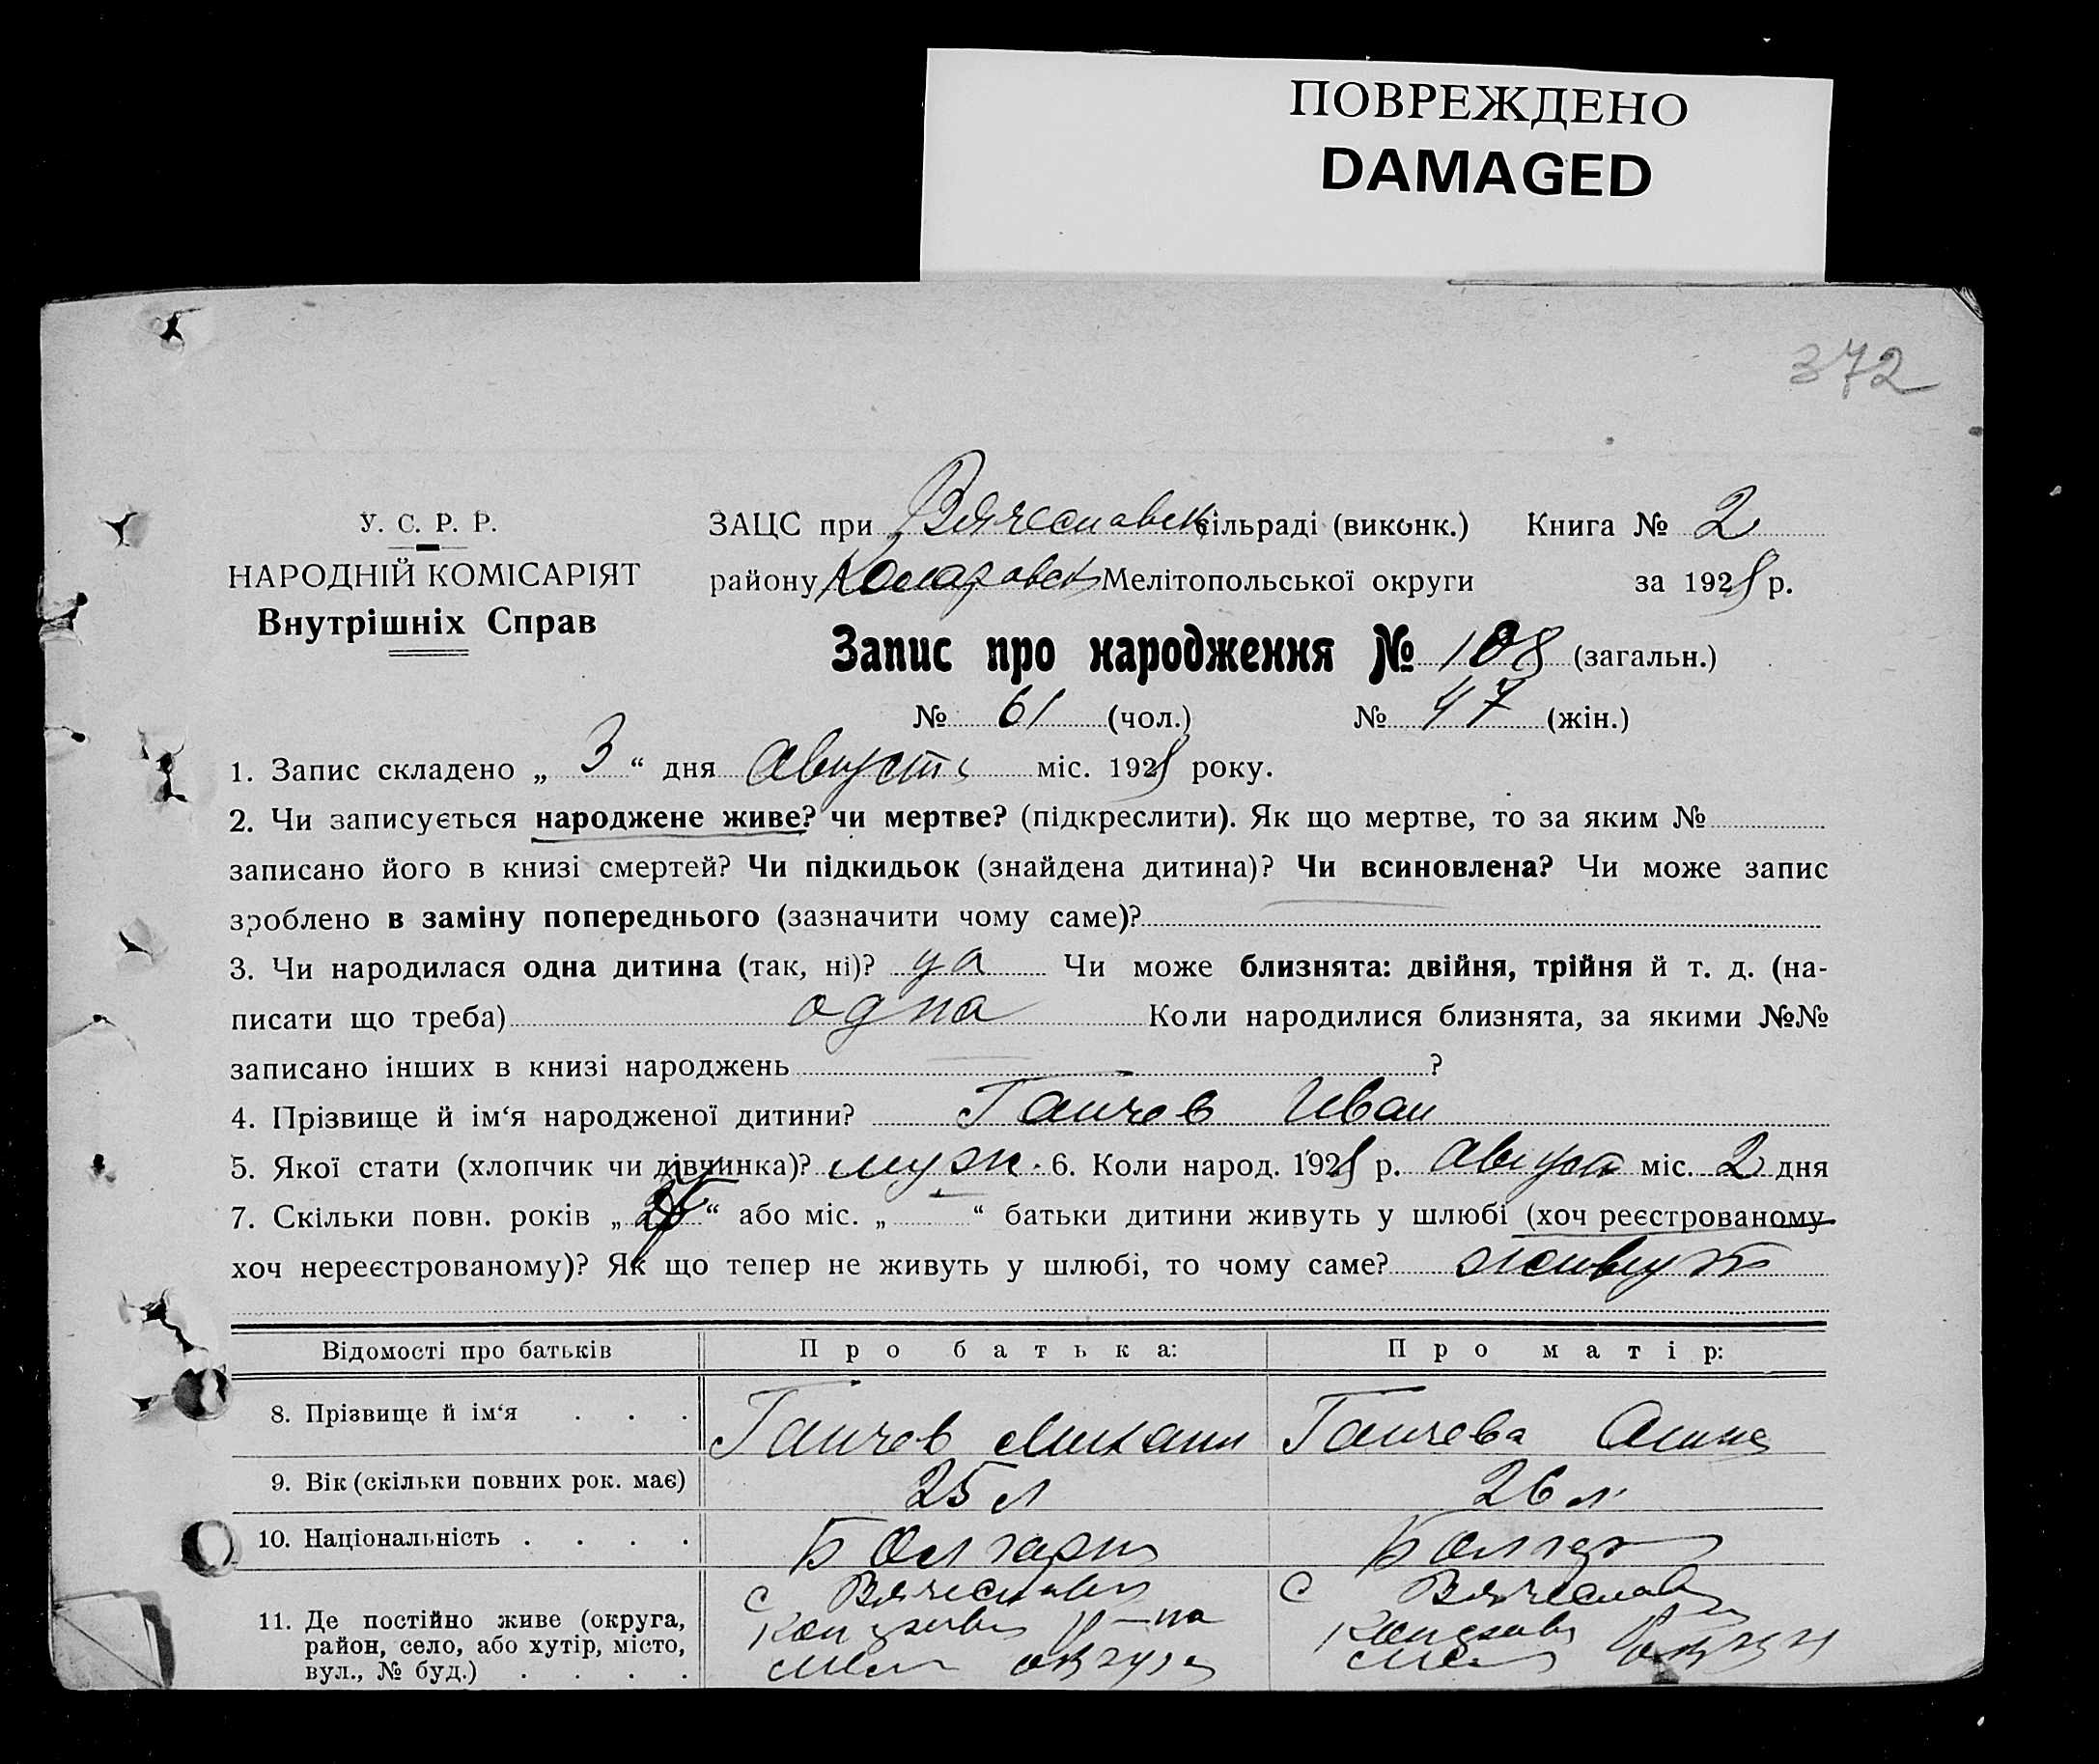 ПОВРЕЖДЕНО
DAMAGED
372
У. С. Р. Р.
НАРОДНІЙ КОМІСАРІЯТ
Внутрішніх Справ
ЗАЦС при Вячеславск сільраді (виконк.) Книга № 2
району Коларовск Мелітопольської округи за 1928 р.
Запис про народження № 108 (загальн.)
№ 61 (чол.) № 47 (жін.)
1. Запис складено „ 3 “ дня августа міс. 1928 року.
2. Чи записується народжене живе? чи мертве? (підкреслити). Як що мертве, то за яким №
записано його в книзі смертей? Чи підкидьок (знайдена дитина)? Чи всиновлена? Чи може запис
зроблено в заміну попереднього (зазначити чому саме)?
3. Чи народилася одна дитина (так, ні)? да Чи може близнята: двійня, трійня й т. д. (на-
писати що треба) одна Коли народилися близнята, за якими №№
записано інших в книзі народжень ?
4. Прізвище й ім‘я народженої дитини? Ганчев Иван
5. Якої стати (хлопчик чи дівчинка)? муж. 6. Коли народ. 1928 р. августа міс. 2 дня
7. Скільки повн. років „ “ або міс. „ “ батьки дитини живуть у шлюбі (хоч реєстрованому
хоч нереєстрованому)? Як що тепер не живуть у шлюбі, то чому саме? живут
Відомості про батьків Про батька: Про матір:
8. Прізвище й ім‘я . . . Ганчев Михаил Ганчева
9. Вік (скільки повних рок. має) 25 л 26 л.
10. Національність . . . . Болгарин Болгар
11. Де постійно живе (округа, с Вячеславки С Вячеславки
район, село, або хутір, місто, р-на
вул., № буд.) . . . . Мел округи Мел округи